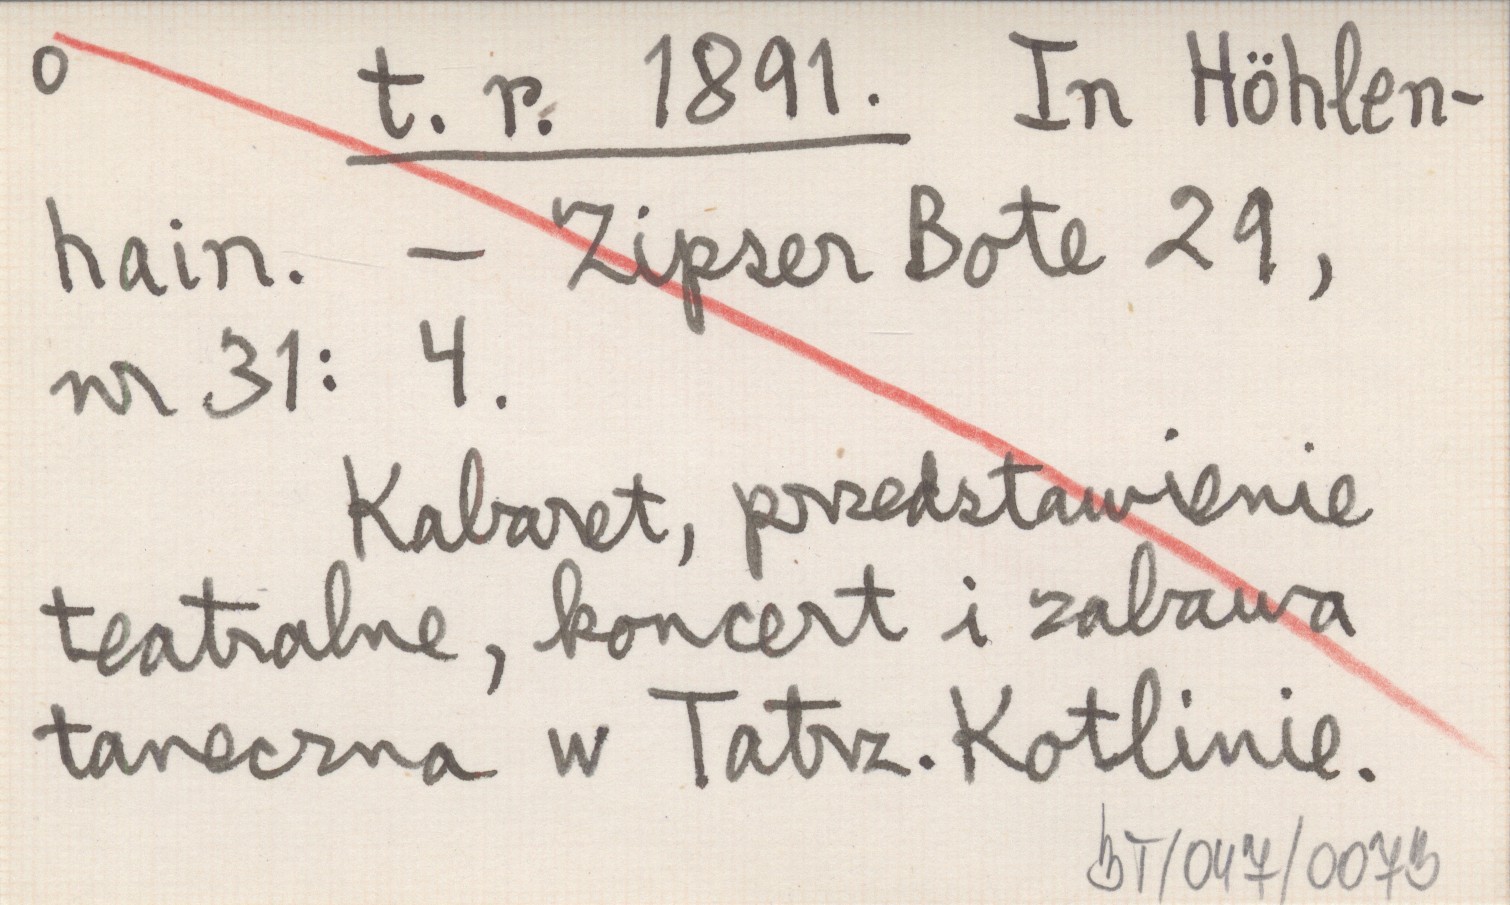 o t. r. 1891. In Höhlen-
hain. — Zipser Bote 29,
nr 31: 4.
Kabaret, przedstawienie
teatralne, koncert i zabawa
taneczna w Tatrz. Kotlinie.
BT/047/0073